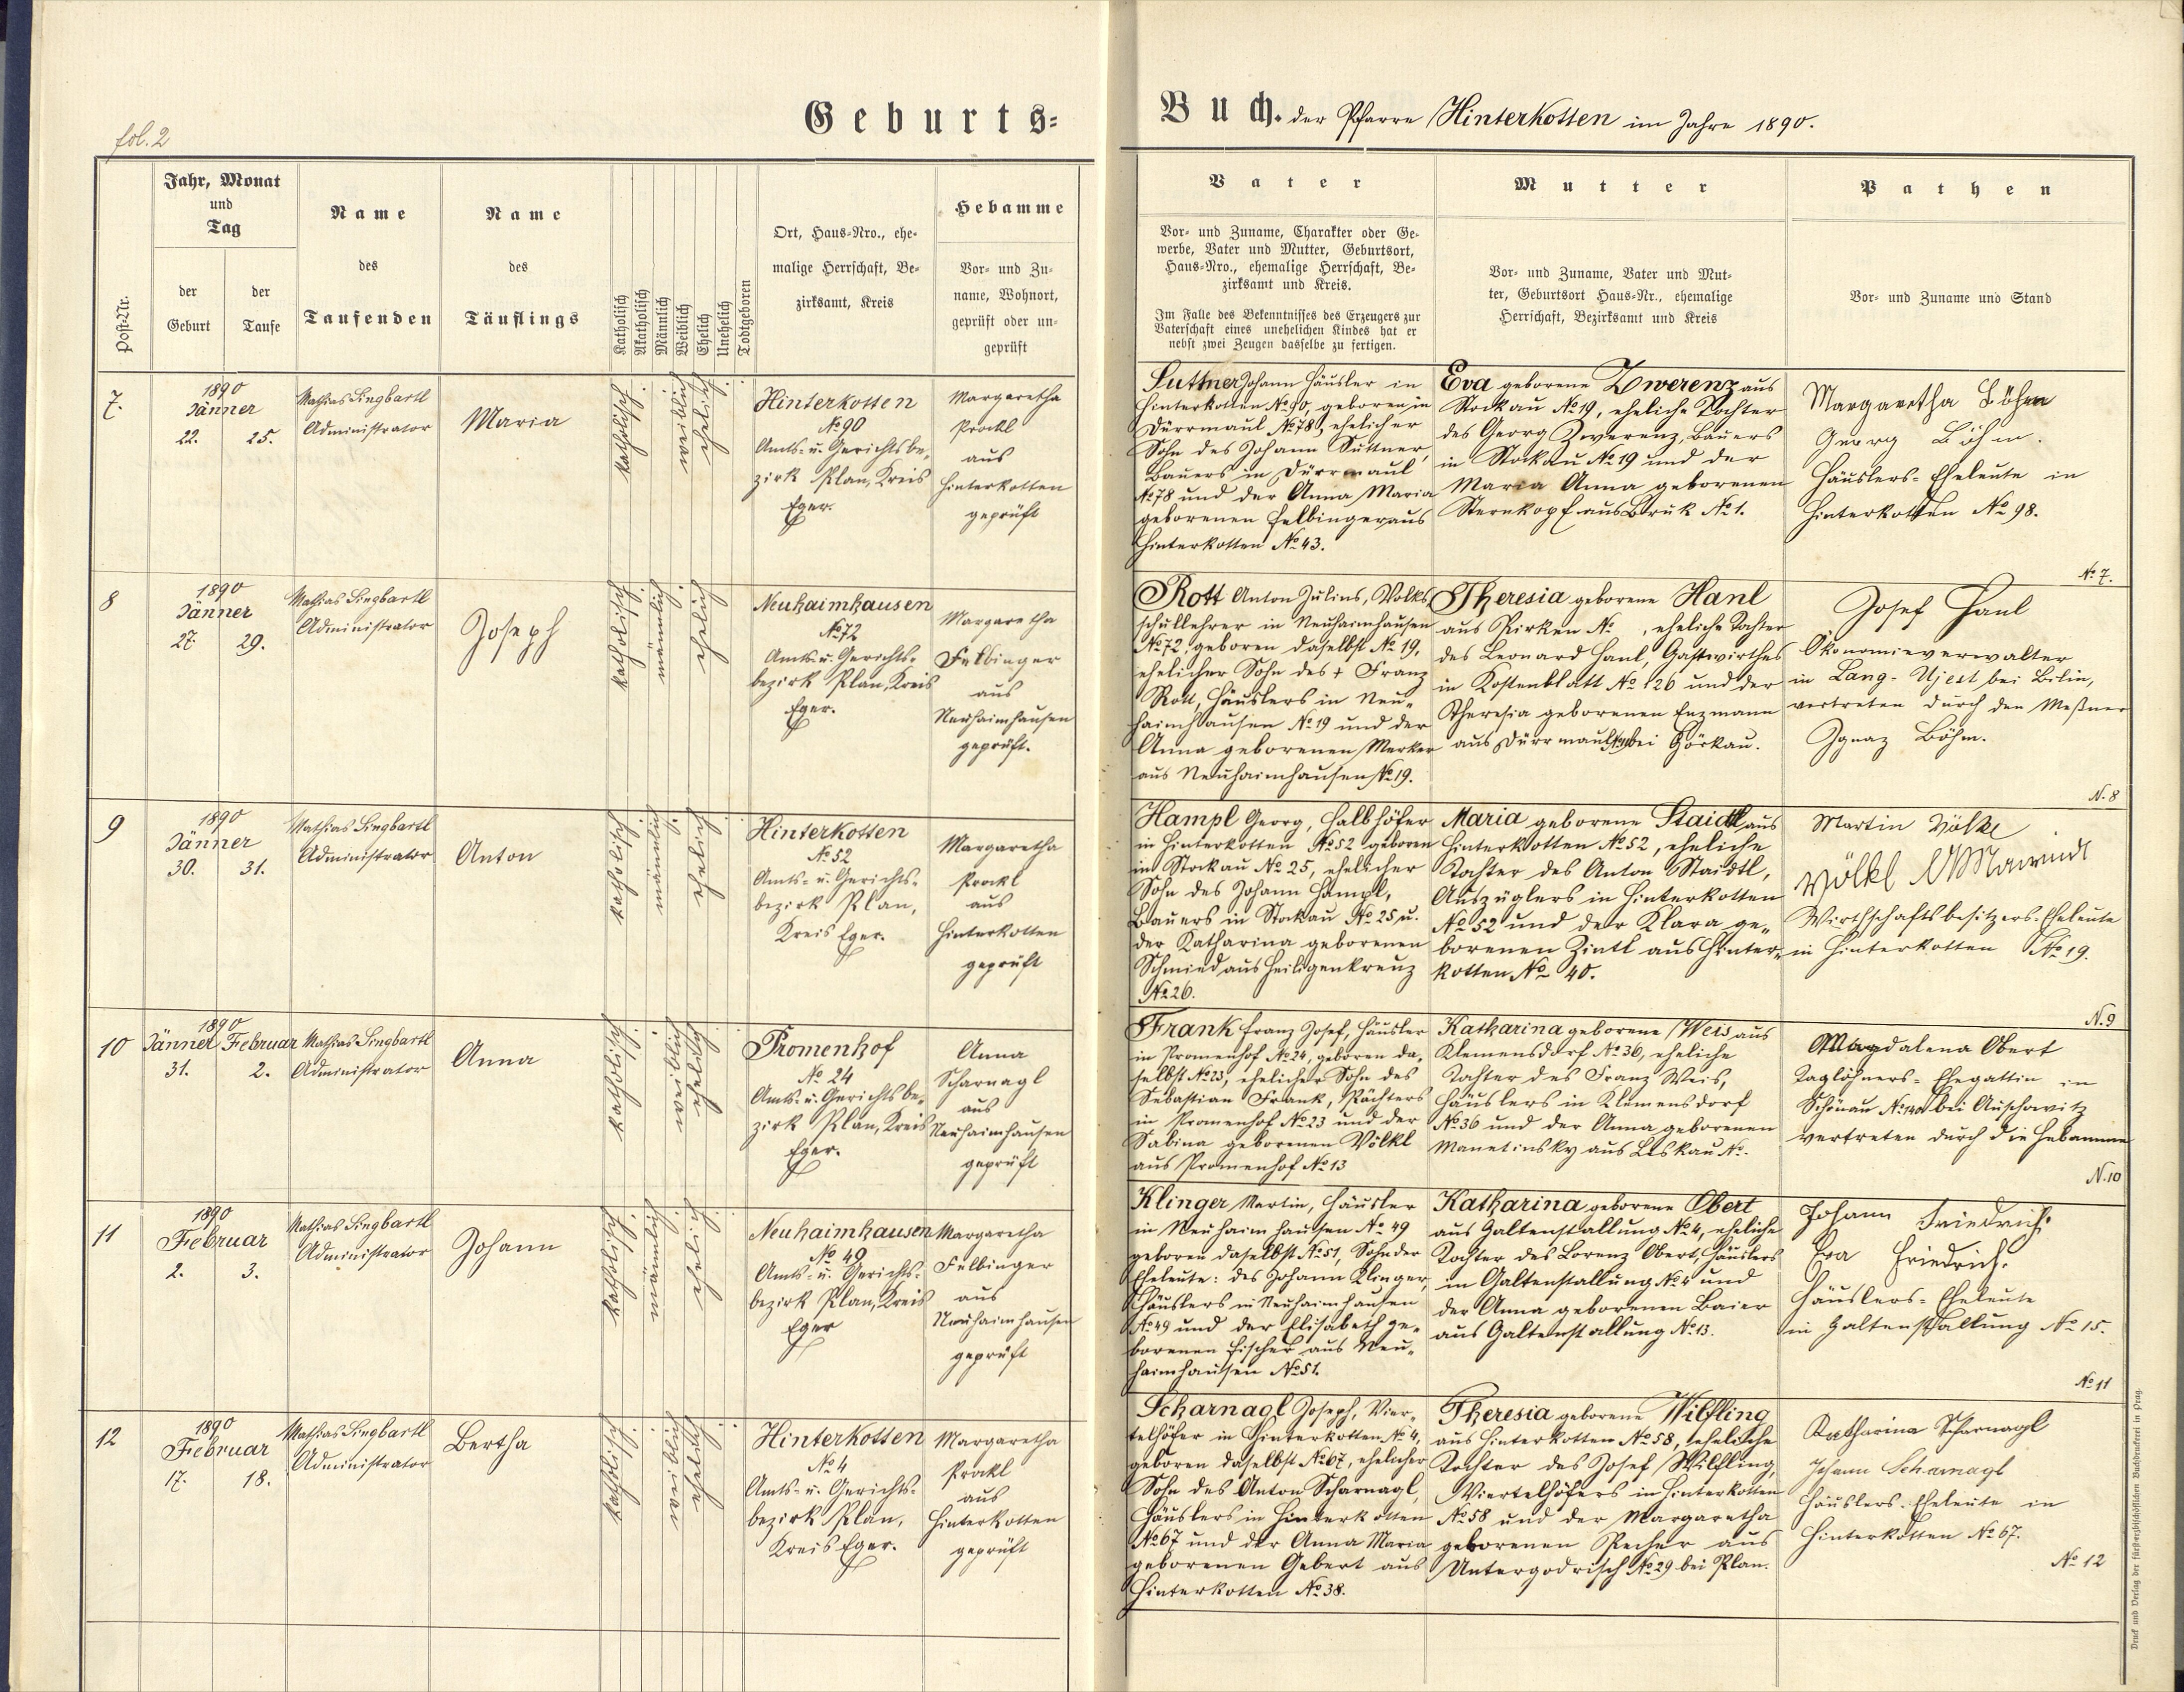 fol. 2
Geburts-
Buch. der Pfarre Hinterkotten im Jahre 1890.
Post-Nr.
Jahr, Monat
und
Tag
der
Geburt
der
Taufe
Name
des
Taufenden
Name
des
Täuflings
Katholisch
Akatholisch
Männlich
Weiblich
Ehelich
Unehelich
Todtgeboren
Ort, Haus-Nro., ehe-
malige Herrschaft, Be-
zirksamt, Kreis
Hebamme
Vor- und Zu-
name, Wohnort,
geprüft oder un-
geprüft
Vater
Vor- und Zuname, Charakter oder Ge-
werbe, Vater und Mutter, Geburtsort,
Haus-Nro., ehemalige Herrschaft, Be-
zirksamt und Kreis.
Im Falle des Bekenntnisses des Erzeugers zur
Vaterschaft eines unehelichen Kindes hat er
nebst zwei Zeugen dasselbe zu fertigen.
Mutter
Vor- und Zuname, Vater und Mut-
ter, Geburtsort Haus-Nr., ehemalige
Herrschaft, Bezirksamt und Kreis
Pathen
Vor- und Zuname und Stand
7.
1890
Jänner
22. 25.
Mathias Singbartl
Administrator
Maria
katholisch
weiblich
ehelich
Hinterkotten
No 90
Amts- u. Gerichtsbe-
zirk Plan, Kreis
Eger.
Margaretha
Prockl
aus
Hinterkotten
geprüft
Suttner Johann Häusler in
Hinterkotten No 90, geboren in
Dürrmaul No 78, ehelicher
Sohn des Johann Suttner,
Bauers in Dürrmaul
No 78 und der Anna Maria
geborenen Felbinger aus
Hinterkotten No 43.
Eva geborene Zwerenz aus
Stockau No 19, eheliche Tochter
des Georg Zwerenz, Bauers
in Stockau No 19 und der
Maria Anna geborenen
Sternkopf aus Bruk No 1.
Margaretha Böhm
Georg Böhm.
Häuslers-Eheleute in
Hinterkotten No 98.
No 7.
8
1890
Jänner
27. 29.
Mathias Singbartl
Administrator
Joseph
katholisch
männlich
ehelich
Neuhaimhausen
No 72
Amts- u. Gerichts-
bezirk Plan, Kreis
Eger.
Margaretha
Felbinger
aus
Neuhaimhausen
geprüft.
Rott Anton Julius, Volks-
schullehrer in Neuhaimhausen
No 72, geboren daselbst No 19,
ehelicher Sohn des + Franz
Rott, Häuslers in Neu-
haimhausen No 19 und der
Anna geborenen Merker
aus Neuhaimhausen No 19.
Theresia geborene Hanl
aus Pirken No , eheliche Tochter
des Leonard Hanl, Gastwirthes
in Kostenblatt No 126 und der
Theresia geborenen Enzmann
aus Dürrmaul bei Görkau.
Josef Hanl
Ökonomieverwalter
in Lang-Ujest bei Bilin,
vertreten durch den Meßner
Ignaz Böhm.
N. 8
9
1890
Jänner
30. 31.
Mathias Singbartl
Administrator
Anton
katholisch
männlich
ehelich
Hinterkotten
No 52
Amts- u. Gerichts-
bezirk Plan,
Kreis Eger.
Margaretha
Prockl
aus
Hinterkotten
geprüft
Hampl Georg, Halbhöfer
in Hinterkotten No 52 geboren
in Stockau No 25, ehelicher
Sohn des Johann Hampl,
Bauers in Stockau No 25 u.
der Katharina geborenen
Schmied aus Heiligenkreuz
No 26.
Maria geborene Staidtl aus
Hinterkotten No 52, eheliche
Tochter des Anton Staidtl,
Auszüglers in Hinterkotten
No 52 und der Klara ge-
borenen Zintl aus Hinter-
kotten No 40.
Martin Völkl
Völkl
Wirthschaftsbesitzers-Eheleute
in Hinterkotten No 19.
N. 9
10
1890
Jänner Februar
31. 2.
Mathias Singbartl
Administrator
Anna
katholisch
weiblich
ehelich
Promenhof
No 24
Amts- u. Gerichtsbe-
zirk Plan, Kreis
Eger.
Anna
Scharnagl
aus
Neuhaimhausen
geprüft
Frank Franz Josef, Häusler
in Promenhof No 24, geboren da-
selbst No 23, ehelicher Sohn des
Sebastian Frank, Pächters
in Promenhof No 23 und der
Sabina geborenen Völkl
aus Promenhof No 13
Katharina geborene Weis aus
Klemensdorf No 36, eheliche
Tochter des Franz Weis,
Häuslers in Klemensdorf
No 36 und der Anna geborenen
Manetinsky aus Leskau No.
Magdalena Obert
Taglöhners-Ehegattin in
Schönau No 140 bei Auschowitz
vertreten durch die Hebamme
N. 10
11
1890
Februar
2. 3.
Mathias Singbartl
Administrator
Johann
katholisch
männlich
ehelich
Neuhaimhausen
No 49
Amts- u. Gerichts-
bezirk Plan, Kreis
Eger
Margaretha
Felbinger
aus
Neuhaimhausen
geprüft
Klinger Martin, Häusler
in Neuhaimhausen No 49
geboren daselbst No 51, Sohn der
Eheleute: des Johann Klinger,
Häuslers in Neuhaimhausen
No 49 und der Elisabeth ge-
borenen Fischer aus Neu-
haimhausen No 51.
Katharina geborene Obert
aus Galtenstallung No 4, eheliche
Tochter des Lorenz Obert, Häuslers
in Galtenstallung No 4 und
der Anna geborenen Baier
aus Galtenstallung No 13.
Johann Friedrich.
Eva Friedrich.
Häuslers-Eheleute
in Galtenstallung No 15.
No 11
12
1890
Februar
17. 18.
Mathias Singbartl
Administrator
Bertha
katholisch
weiblich
ehelich
Hinterkotten
No 4
Amts- u. Gerichts-
bezirk Plan,
Kreis Eger.
Margaretha
Prockl
aus
Hinterkotten
geprüft
Scharnagl Joseph, Vier-
telhöfer in Hinterkotten No 4,
geboren daselbst No 67, ehelicher
Sohn des Anton Scharnagl,
Häuslers in Hinterkotten
No 67 und der Anna Maria
geborenen Gebert aus
Hinterkotten No 38.
Theresia geborene Wilfling
aus Hinterkotten No 58, eheliche
Tochter des Josef Wilfling,
Viertelhöfers in Hinterkotten
No 58 und der Margaretha
geborenen Pecher aus
Untergodrisch No 29 bei Plan.
Katharina Scharnagl
Johann Scharnagl
Häuslers-Eheleute in
Hinterkotten No 67.
No 12
Druck und Verlag der fürsterzbischöflichen Buchdruckerei in Prag.